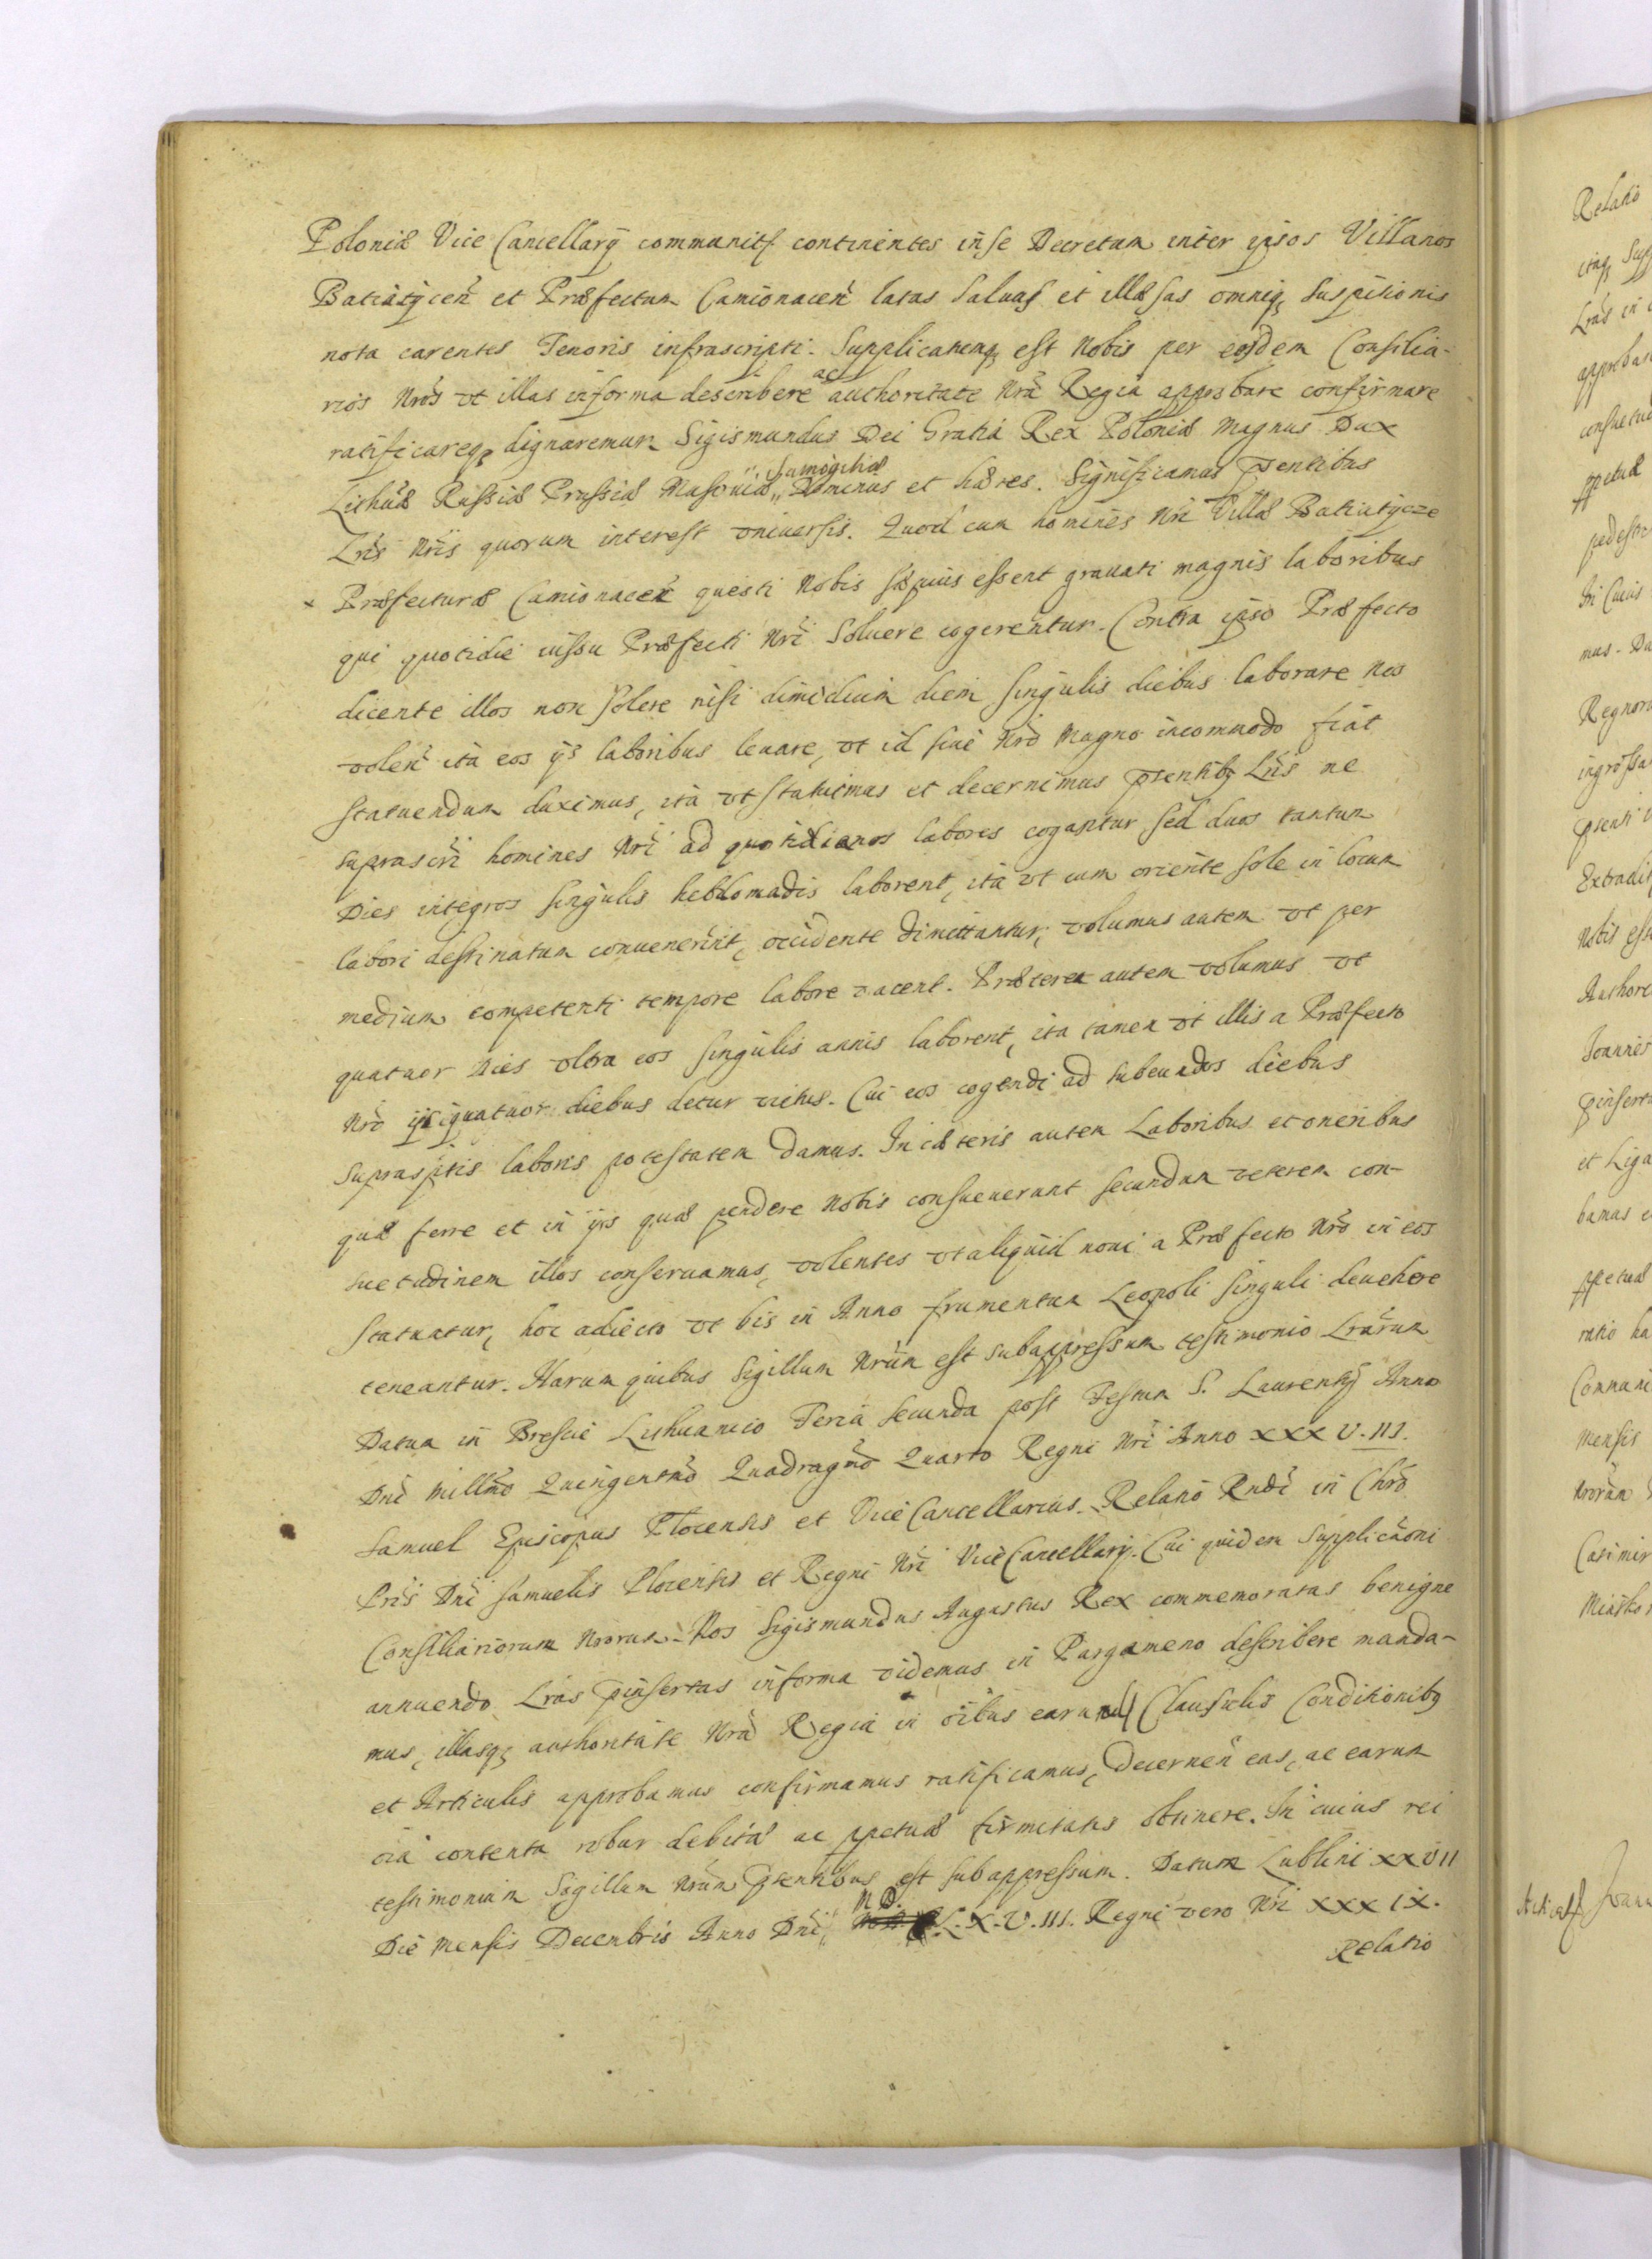 Poloniæ Vice Cancellarÿ communitſ continentes in se Decretum inter ipsos Villanos
Batiatÿceñ et Præfectum Camionaceñ latas Saluas et illæsas omniq₃ Suspitionis
nota carentes Tenoris infrascripti. Supplicatumq₃ est Nobis per eosdem Consilia-
rios Nr̃os vt illas in forma describere ac authoritate Nr̃a Regia approbare confirmare
ratificareq₃ dignaremur Sigismundus Dei Gratia Rex Poloniæ Magnus Dux
Lithũæ Russiæ Prussiæ Masouiæ, Samogitiæ Dominus et hæres. Significamus p̃sentibus
Lr̃is Nr̃is quorum interest vniuersis. Quod cum homines Nr̃i Villæ Batiatÿcze
× Præfecturæ Camionaceñ questi Nobis sæpius essent grauati magnis laboribus
qui quotidie iussu Præfecti Nr̃i Soluere cogerentur. Contra ipso Præfecto
dicente illos non solere nisi dimidium diem singulis diebus laborare Nos
voleñ ita eos ijs laboribus leuare, vt id sine Nr̃o magno incommodo fiat
statuendum duximus, ita vt statuimus et decernimus p̃sentib₃ Lr̃is ne
suprascr̃i homines Nr̃i ad quotidianos labores cogantur sed duos tantum
Dies integros singulis hebdomadis laborent, ita vt cum oriente sole in locum
labori destinatum conuenerint, occidente dimittantur, volumus autem vt per
medium competenti tempore labore vacent. Præterea autem volumus vt
quatuor dies vltra eos singulis annis laborent, ita tamen vt illis a Præfecto
Nr̃o ijs quatuor diebus detur victus. Cui eos cogendi ad subeundos diebus
suprasp̃tis laboris potestatem damus. In cæteris autem Laboribus et oneribus
quæ ferre et in ijs quæ pendere Nobis consueuerunt secundum veterem con-
suetudinem illos conseruamus, volentes vt aliquid noui a Præfecto Nr̃o in eos
statuatur, hoc adiecto vt bis in Anno frumentum Leopoli singuli deuehere
teneantur. Harum quibus Sigillum Nr̃um est subappressum testimonio Lr̃arum
Datum in Brescie Lithuanico Feria secunda post Festum S. Laurentÿ Anno
Dñi Mill̃mo Quingent̃mo Quadrag̃mo Quarto Regni Nr̃i Anno XXXVIII.
Samuel Episcopus Plocensis et Vice Cancellarius. Relatio Rnd̃i in Chr̃o
Pr̃is Dñi Samuelis Plocensis et Regni Nr̃i Vice Cancellarÿ. Cui quidem Supplicãoni
Consiliariorum Nrorum. Nos Sigismundus Augustus Rex commemoratas benigne
annuendo Lr̃as p̃insertas in forma videmus in Pargameno describere manda-
mus, illasq₃ authoritate Nr̃a Regia in oĩbus earund Clausulis Conditionib₃
et Articulis approbamus confirmamus ratificamus, Decerneñ eas, ac earum
oĩa contenta robur debitæ ac ppetuæ firmitatis obtinere. In cuius rei
testimonium Sigillum Nr̃um p̃sentibus est subappressum. Datum Lublini XXVII
Die Mensis Decembris Anno Dñi M.D.L.X.V.III. Regni vero Nr̃i XXXIX.
Relatio